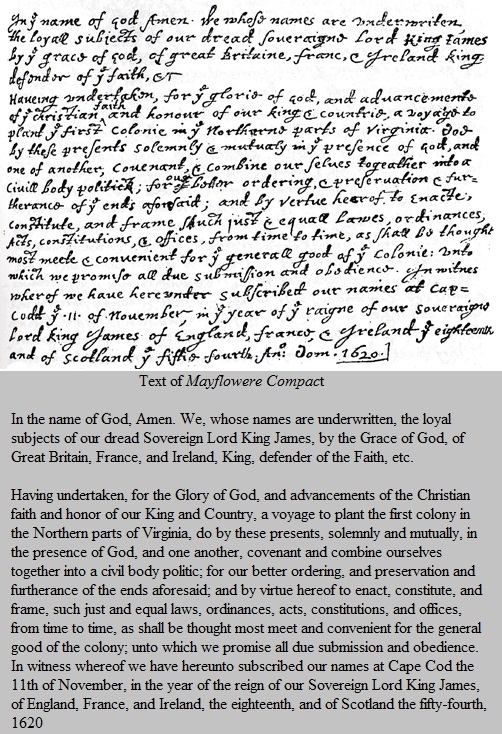 In yͤ name of god Amen. We whose names are underwriten,
the loyall subjects of our dread soveraigne Lord King James
by yͤ grace of god, of great Britaine, franc, & Ireland king,
defender of yͤ faith, &c
Haveing undertaken, for yͤ glorie of god, and advancemente
of yͤ christian faith and honour of our king & countrie, a voyage to
plant yͤ first colonie in yͤ Northerne parts of Virginia. Doe
by these presents solemnly & mutualy in yͤ presence of god, and
one of another, covenant, & combine our selves togeather into a
Civill body politick; for our better ordering, & preservation & fur-
therance of yͤ ends aforesaid; and by vertue hearof to Enacte,
constitute, and frame shuch just & equall Lawes, ordinances,
Acts, constitutions, & offices, from time to time, as shall be thought
most meete & convenient for yͤ generall good of yͤ Colonie: unto
which we promise all due submission and obedience. In witnes
wherof we have hereunder subscribed our names at Cap=
Codd yͤ .11. of November, in yͤ year of yͤ raigne of our soveraigne
Lord king James of England, france, & Ireland yͤ eighteenth
and of Scotland yͤ fiftie fourth. Anͦ: Dom. 1620.]
Text of Mayflowere Compact
In the name of God, Amen. We, whose names are underwritten, the loyal
subjects of our dread Sovereign Lord King James, by the Grace of God, of
Great Britain, France, and Ireland, King, defender of the Faith, etc.
Having undertaken, for the Glory of God, and advancements of the Christian
faith and honor of our King and Country, a voyage to plant the first colony in
the Northern parts of Virginia, do by these presents, solemnly and mutually, in
the presence of God, and one another, covenant and combine ourselves
together into a civil body politic; for our better ordering, and preservation and
furtherance of the ends aforesaid; and by virtue hereof to enact, constitute, and
frame, such just and equal laws, ordinances, acts, constitutions, and offices,
from time to time, as shall be thought most meet and convenient for the general
good of the colony; unto which we promise all due submission and obedience.
In witness whereof we have hereunto subscribed our names at Cape Cod the
11th of November, in the year of the reign of our Sovereign Lord King James,
of England, France, and Ireland, the eighteenth, and of Scotland the fifty-fourth,
1620